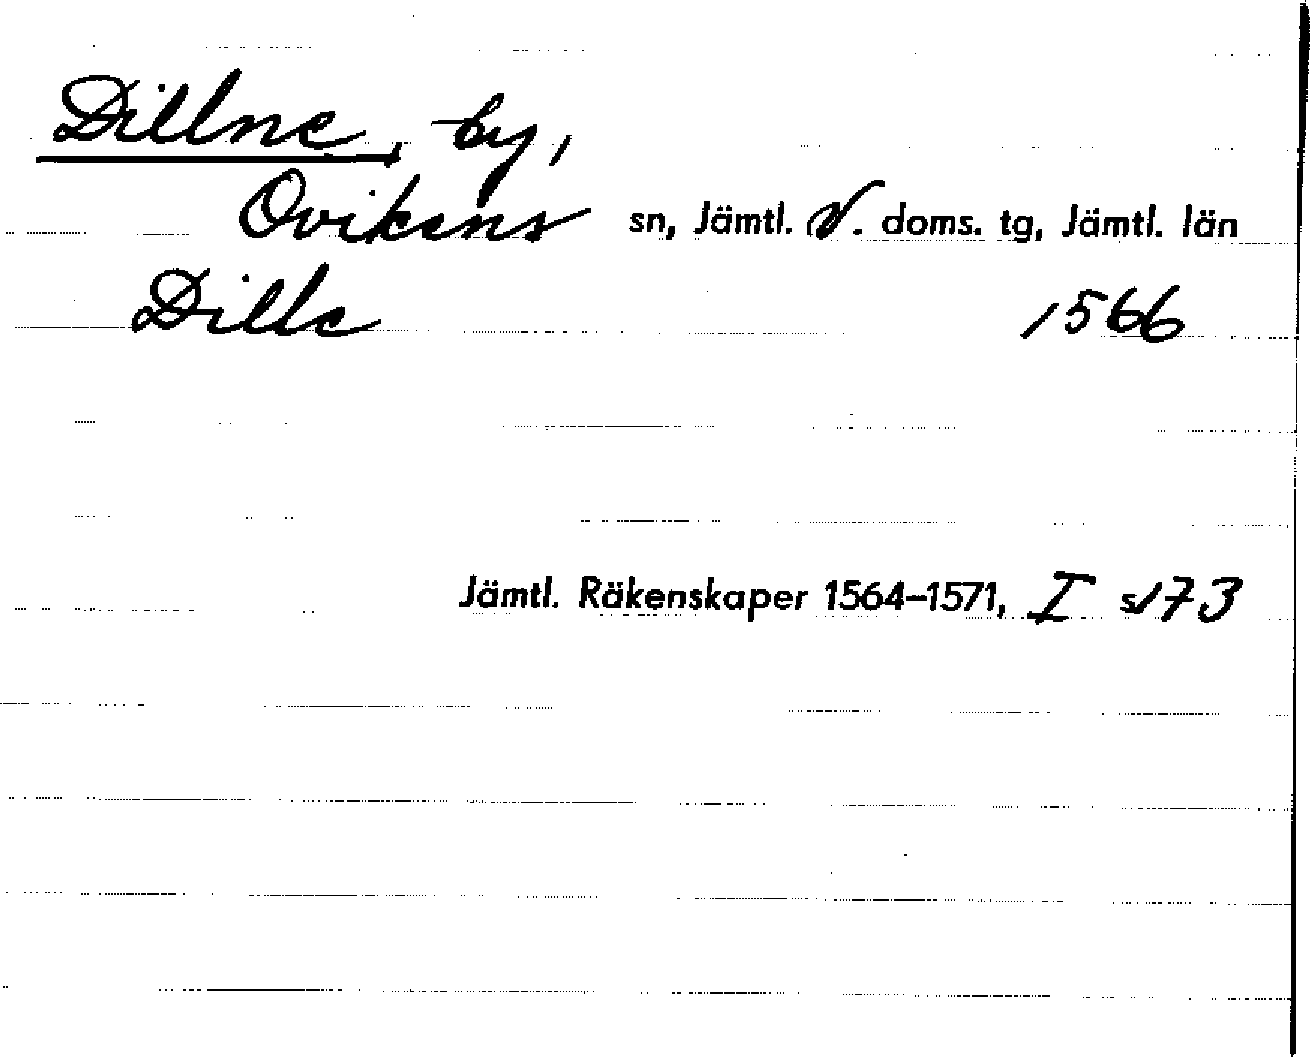 Dillne, by,
Ovikens sn, Jämtl. V. doms. tg, Jämtl. län
Dille 1566
Jämtl. Räkenskaper 1564–1571, I s173